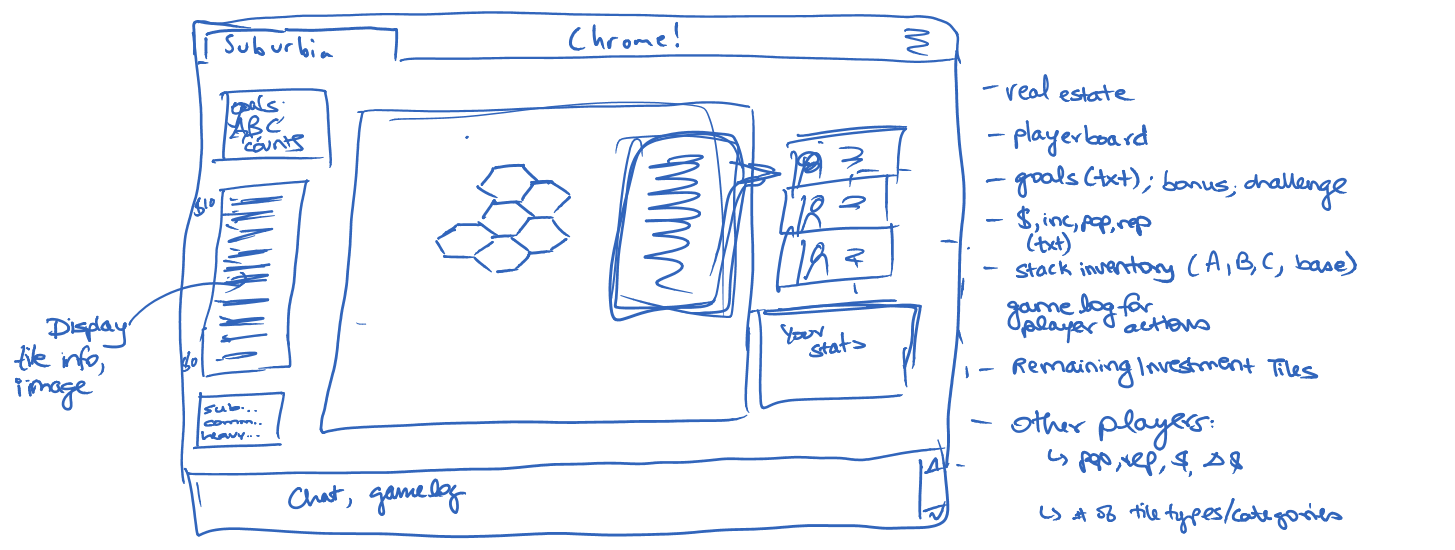 Suburbia
Chrome!
goals:
ABC
counts
$10
$0
Display
tile info,
image
sub...
comm..
heavy...
Your
stats
Chat, gamelog
- real estate
- playerboard
- goals (txt); bonus; challenge
- $, inc, pop, rep
(txt)
- stack inventory (A, B, C, base)
game log for
player actions
- Remaining Investment Tiles
- Other players:
↳ pop, rep, $, Δ$
↳ # of tile types/categories